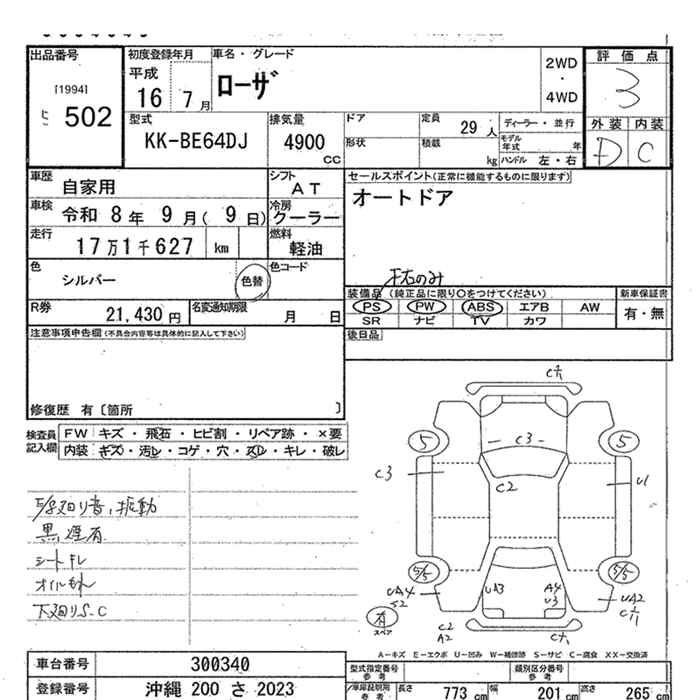 出品番号
[1994]
502
初度登録年月
平成
16 7月
車名・グレード
ローザ
2WD
・
4WD
評価点
3
外装 内装
D C
型式
KK-BE64DJ
排気量
4900
CC
ドア
形状
定員
29 人
積載
kg
ディーラー・並行
モデル年式 年
ハンドル 左・右
車歴
自家用
シフト
AT
車検
令和 8年 9月( 9日)
冷房
クーラー
走行
17万1千627 km
燃料
軽油
色
シルバー
色替
色コード
R券
21,430 円
名変通知期限
月 日
セールスポイント(正常に機能するものに限ります)
オートドア
装備品 (純正品に限り○をつけてください)
PS PW ABS エアB AW
SR ナビ TV カワ
新車保証書
有・無
後日品
注意事項申告欄(不具合内容等は具体的に記入して下さい)
修復歴 有〔箇所 〕
検査員
記入欄
FW キズ・飛石・ヒビ割・リペア跡・×要
内装 キズ・汚レ・コゲ・穴・スレ・キレ・破レ
黒煙有
下廻りS.C
C3
C2
C3
U1
5
5
5/5
5/5
UA3
A4
U3
UA4
S2
UA2
C2
A2
有
スペア
A-キズ E-エクボ U-凹み W-補修跡 S-サビ C-腐食 XX-交換済
車台番号
300340
登録番号
沖縄 200 さ 2023
型式指定番号
参考
類別区分番号
参考
車庫証明用
参考
長さ
773 cm
幅
201 cm
高さ
265 cm